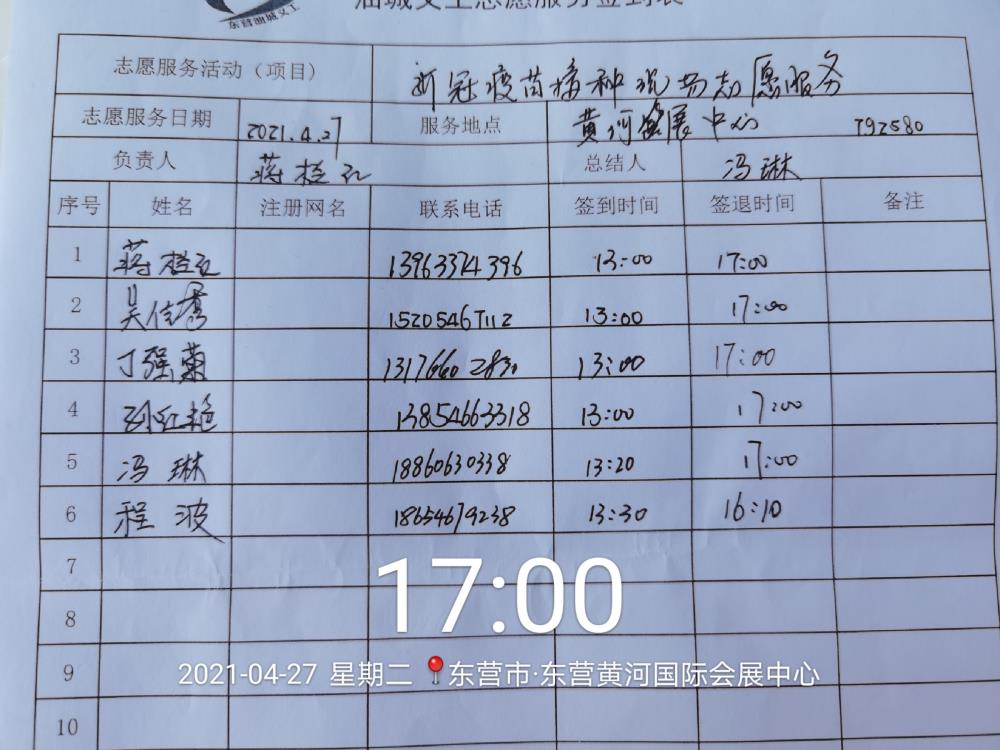 东营油城义工
油城义工志愿服务签到表
志愿服务活动（项目） 新冠疫苗接种现场志愿服务
志愿服务日期 2021.4.27 服务地点 黄河会展中心 792580
负责人 总结人 冯琳
序号 姓名 注册网名 联系电话 签到时间 签退时间 备注
1 13963374396 13:00 17:00
2 吴佳 15205467112 13:00 17:00
3 丁强菊 13176602830 13:00 17:00
4 孙红艳 13854663318 13:00 17:00
5 冯琳 18860630338 13:20 17:00
6 程波 18654679238 13:30 16:10
7
8
9
10
17:00
2021-04-27 星期二 东营市·东营黄河国际会展中心